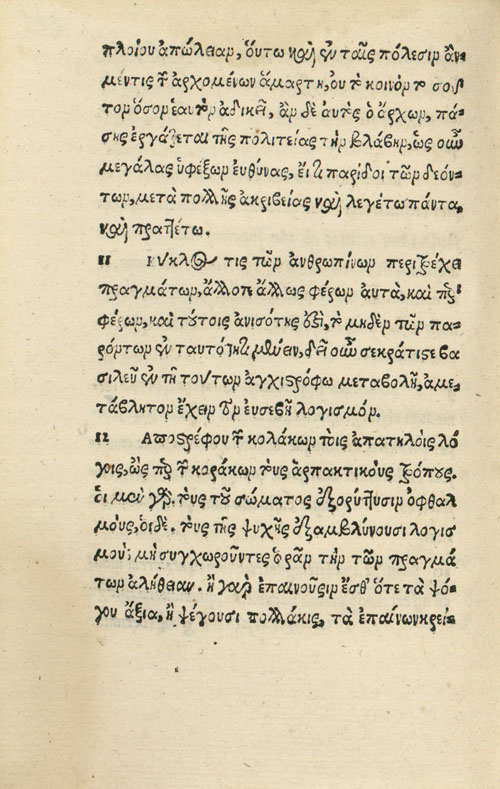 πλοίου ἀπώλειαν, ὅυτω καὶ ἐν ταῖς πόλεσιν ἂν
μέντις τ̃ ἀρχομένων ἁμαρτη, ὀυ τὸ κοινὸν τοσοῦ
τον ὅσον ἑαυτὸν ἀδικεῖ, ἂν δὲ ἀυτὸς ὁ ἄρχων, πά-
σης ἐργάζεται τῆς πολιτείας τὴν βλάβην, ὡς οὖν
μεγάλας ὑφέξων ἐυθύνας, ἔι τι παρίδοι τῶν δεόν-
των, μετὰ πολλῆς ἀκριβείας καὶ λεγέτω πάντα,
καὶ πραττέτω.
11 κύκλος τις τῶν ἀνθρωπίνων περιτρέχει
πραγμάτων, ἄλλοτε ἄλλως φέρων αὐτὰ, καὶ
φέρων, καὶ τούτοις ἀνισότης ἐστὶ, τὸ μηδὲν τῶν πα-
ρόντων ἐν ταυτότητι μένειν, δεῖ οὖν σε κράτιστε βα
σιλεῦ ἐν τῇ τούτων ἀγχιστρόφω μεταβολῆ, ἀμε-
τάβλητον ἔχειν τὸν ἐυσεβῆ λογισμόν.
12 Αποστρέφου τ̃ κολάκων τοὺς ἀπατηλοὺς λό
γους, ὡς τ̃ κοράκων τοὺς ἁρπακτικοὺς τρόπους.
ὁι μὲν γὰρ τοὺς τοῦ σώματος ἐξορύττουσιν ὀφθαλ
μοὺς, ὁι δὲ. τοὺς τῆς ψυχῆς ἐξαμβλύνουσι λογισ
μοὺς μὴ συγχωροῦντες ὁρᾶν τὴν τῶν πραγμά
των ἀλήθειαν. ἢ γὰρ ἐπαινοῦσιν ἔσθ' ὅτε τὰ ψό-
γου ἄξια, ἢ ψέγουσι πολλάκις, τὰ ἐπαίνων κρεί-